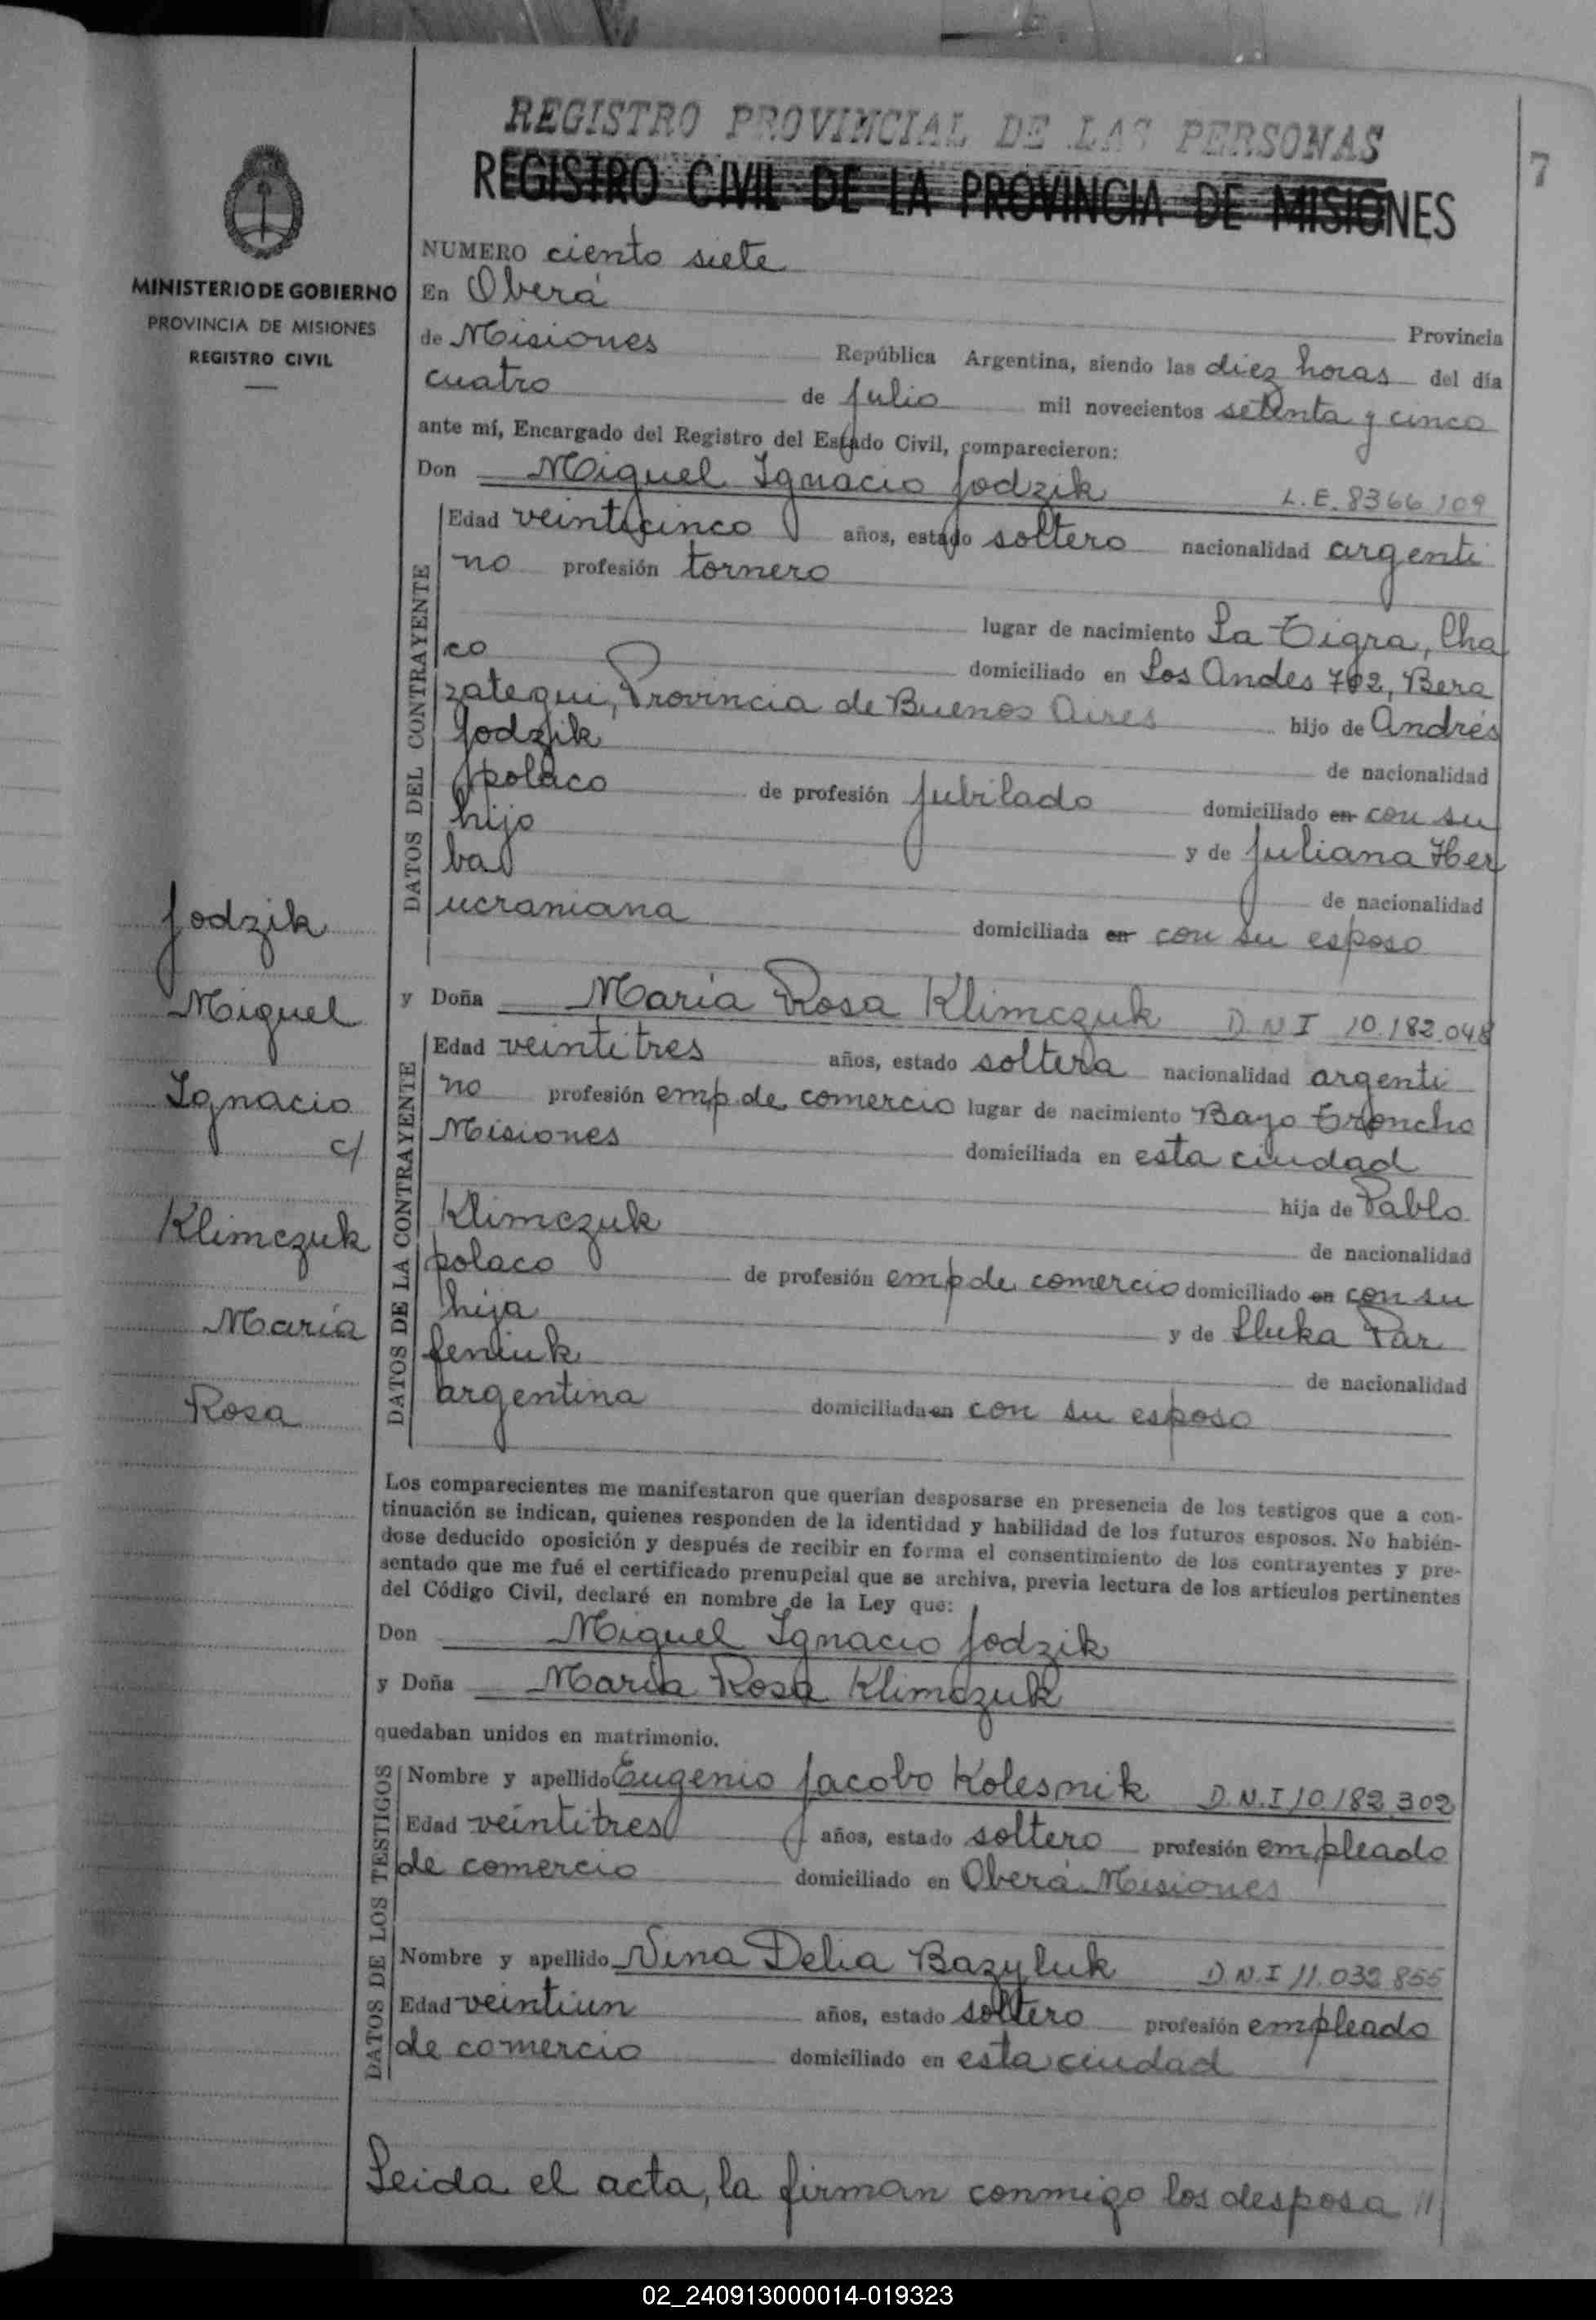 REGISTRO PROVINCIAL DE LAS PERSONAS
REGISTRO CIVIL DE LA PROVINCIA DE MISIONES
7
MINISTERIO DE GOBIERNO
PROVINCIA DE MISIONES
REGISTRO CIVIL
NUMERO ciento siete
En Oberá
Provincia
de Misiones República Argentina, siendo las diez horas del día
cuatro de julio mil novecientos setenta y cinco
ante mí, Encargado del Registro del Estado Civil, comparecieron:
Don Miguel Ignacio Jodzik L.E. 8366109
DATOS DEL CONTRAYENTE
Edad veinticinco años, estado soltero nacionalidad argenti
no profesión tornero
lugar de nacimiento La Tigra, Cha
co domiciliado en Los Andes 702, Bera
zategui, Provincia de Buenos Aires hijo de Andrés
Jodzik
de nacionalidad
polaco de profesión jubilado domiciliado en con su
hijo
y de Juliana Her
ba
de nacionalidad
ucraniana domiciliada en con su esposo
y Doña María Rosa Klimczuk D N I 10.182.048
DATOS DE LA CONTRAYENTE
Edad veintitres años, estado soltera nacionalidad argenti
no profesión emp. de comercio lugar de nacimiento Bayo Troncho
Misiones domiciliada en esta ciudad
hija de Pablo
Klimczuk
de nacionalidad
polaco de profesión emp de comercio domiciliado en con su
hija
y de Lluka Par
feniuk
de nacionalidad
argentina domiciliada en con su esposo
Jodzik
Miguel
Ignacio
c/
Klimczuk
María
Rosa
Los comparecientes me manifestaron que querían desposarse en presencia de los testigos que a con-
tinuación se indican, quienes responden de la identidad y habilidad de los futuros esposos. No habién-
dose deducido oposición y después de recibir en forma el consentimiento de los contrayentes y pre-
sentado que me fué el certificado prenupcial que se archiva, previa lectura de los artículos pertinentes
del Código Civil, declaré en nombre de la Ley que:
Don Miguel Ignacio Jodzik
y Doña María Rosa Klimczuk
quedaban unidos en matrimonio.
DATOS DE LOS TESTIGOS
Nombre y apellido Eugenio Jacobo Kolesnik D.N.I 10.182.302
Edad veintitres años, estado soltero profesión empleado
de comercio domiciliado en Oberá Misiones
Nombre y apellido Nina Delia Bazyluk D.N.I 11.032.855
Edad veintiun años, estado soltero profesión empleado
de comercio domiciliado en esta ciudad
Leida el acta, la firman conmigo los desposa //
02_240913000014-019323